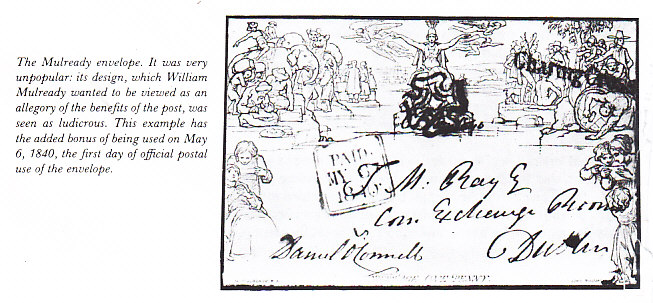 The Mulready envelope. It was very
unpopular: its design, which William
Mulready wanted to be viewed as an
allegory of the benefits of the post, was
seen as ludicrous. This example has
the added bonus of being used on May
6, 1840, the first day of official postal
use of the envelope.
Charing
PAID
MY
T. M. Ray E
Corn Exchange Rooms
Daniel O'Connell
Dublin